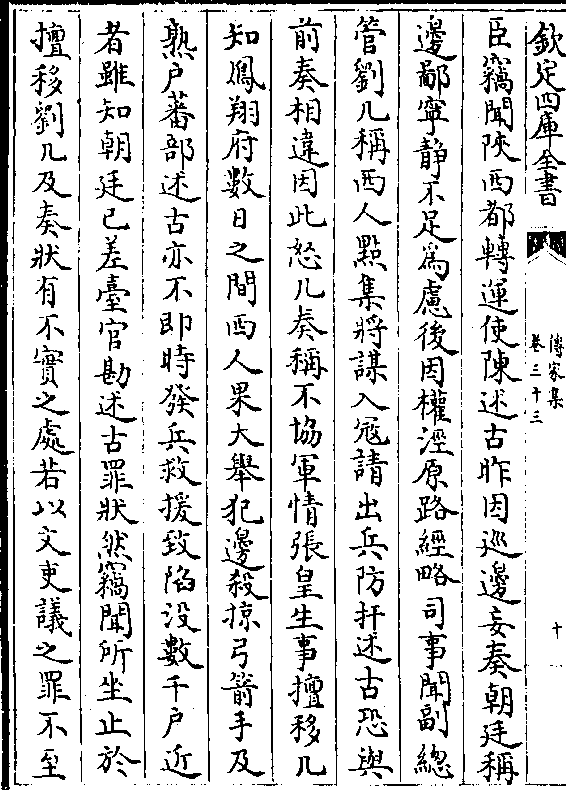 欽定四庫全書
傳家集
卷三十三
十
臣竊聞陜西都轉運使陳述古昨因巡邊妄奏朝廷稱
邊鄙寧静不足為慮後因權涇原路經略司事聞副總
管劉几稱西人㸃集將謀入冦請出兵防扞述古恐與
前奏相違因此怒几奏稱不協軍情張皇生事擅移几
知鳳翔府數日之間西人果大舉犯邊殺掠弓箭手及
熟户蕃部述古亦不即時發兵救援致陷没數千户近
者雖知朝廷已差臺官勘述古罪狀然竊聞所坐止於
擅移劉几及奏狀有不實之處若以文吏議之罪不至